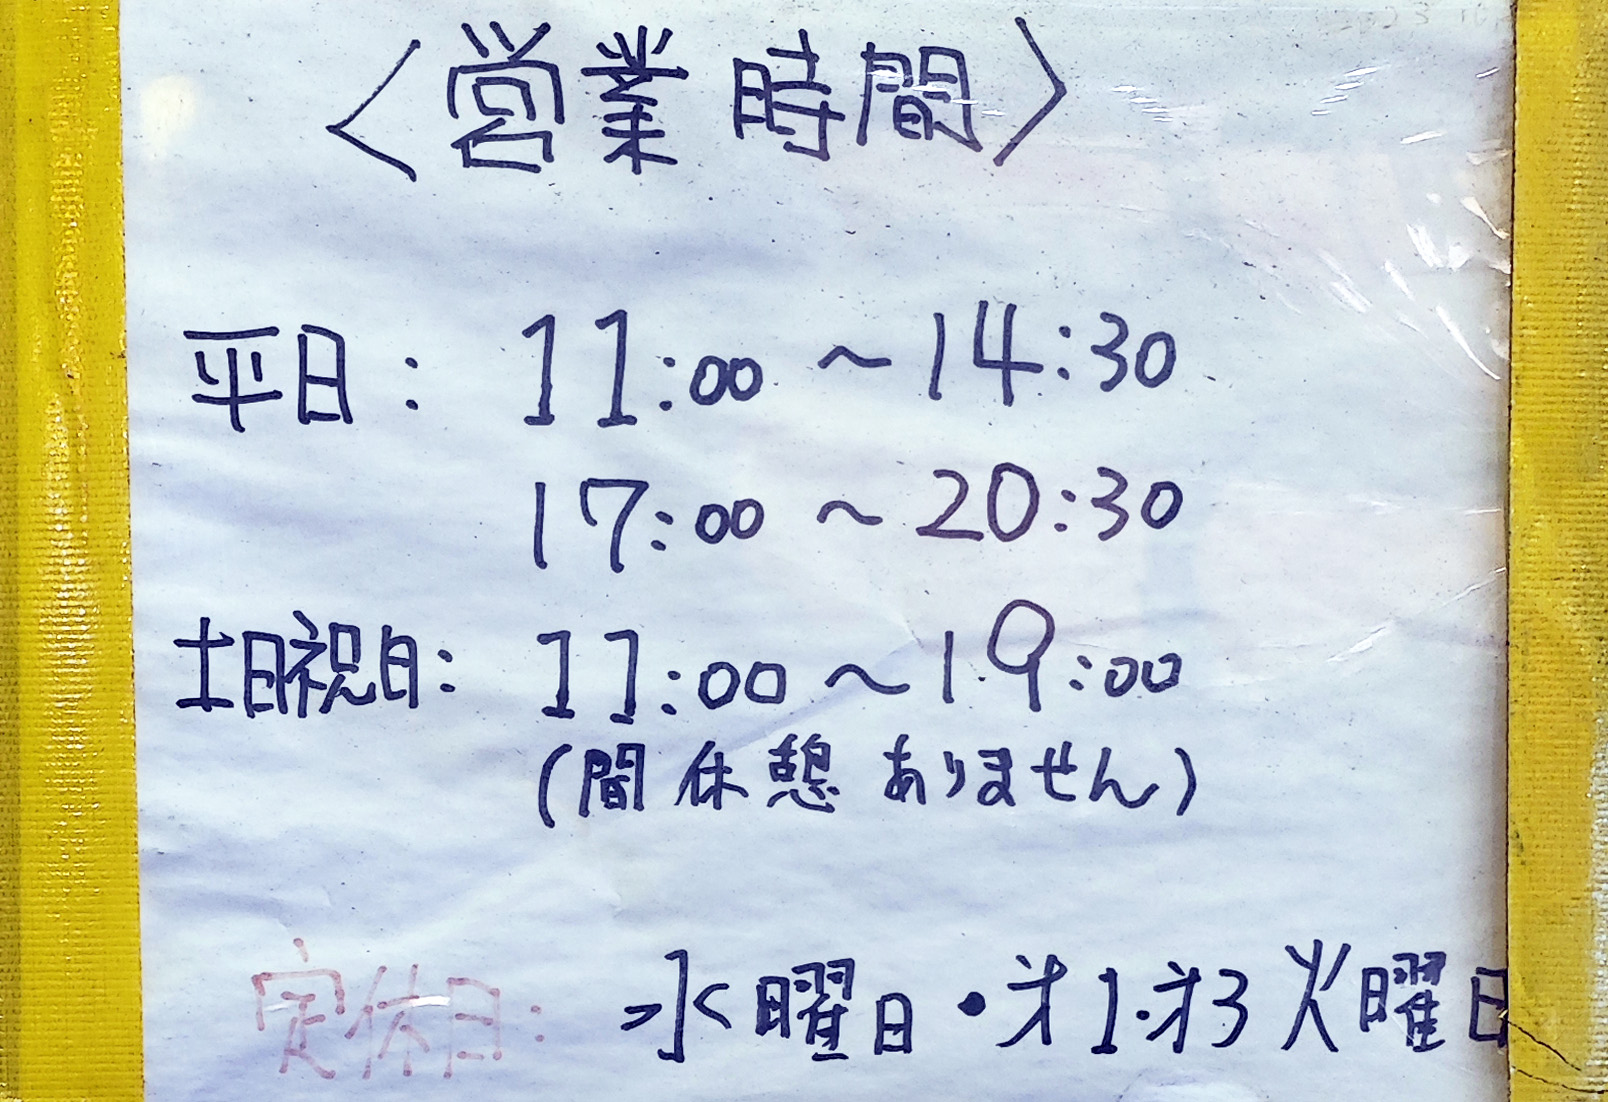 〈営業時間〉
平日: 11:00 ~ 14:30
17:00 ~ 20:30
土日祝日: 11:00 ~ 19:00
(間休憩ありません)
定休日: 水曜日・才1・才3火曜日